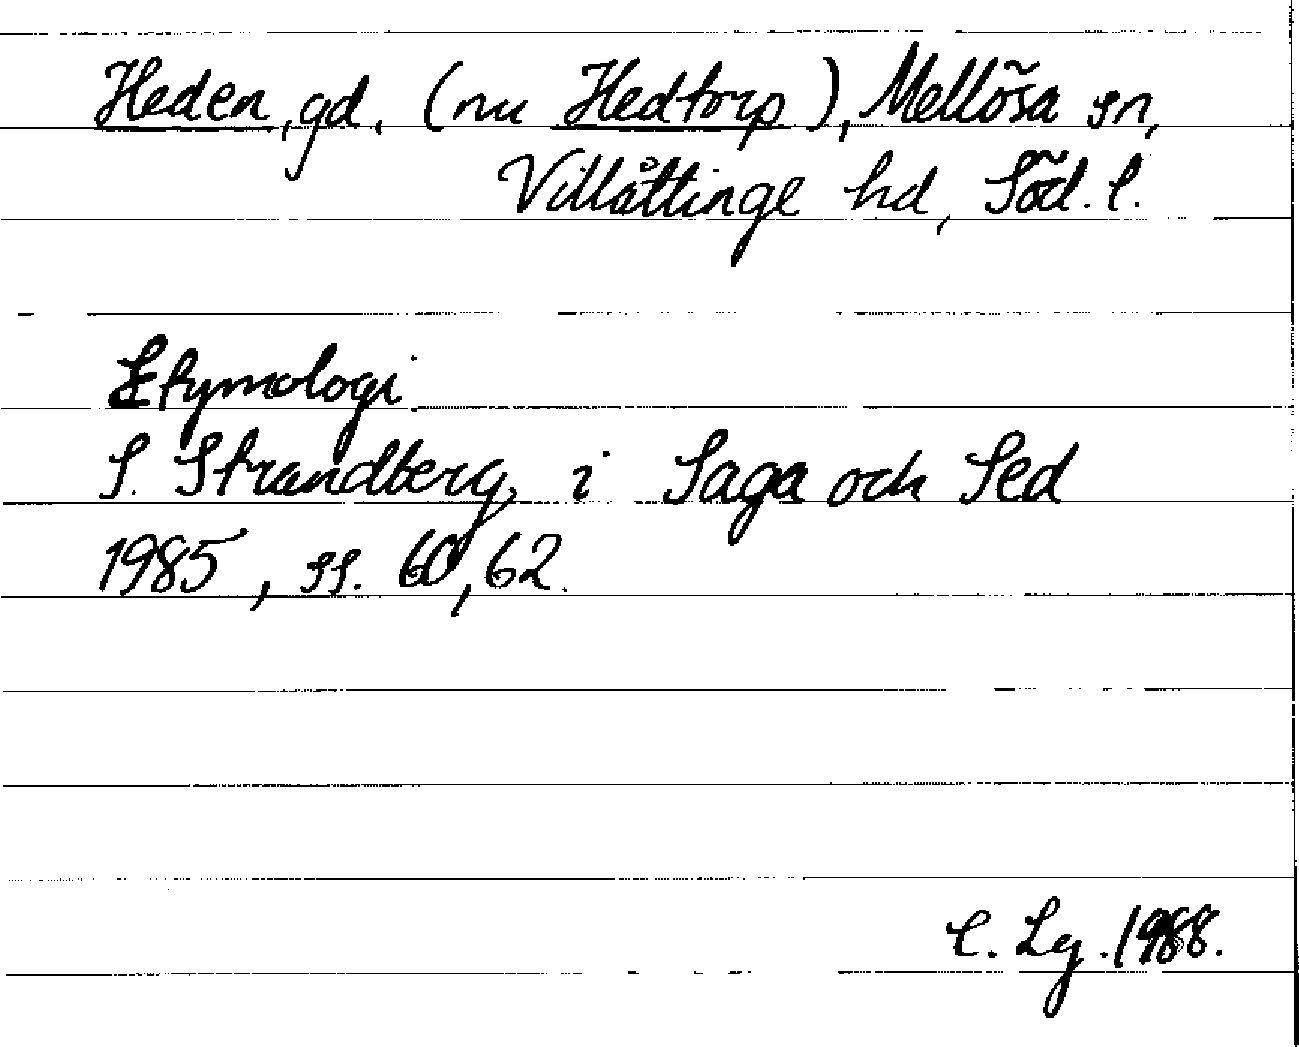 Heden, gd. (nu Hedtorp), Mellösa sn,
Villåttinge hd, Söd. l.
Etymologi
S. Strandberg, i Saga och Sed
1985, ss. 60, 62.
C. Lg. 1988.